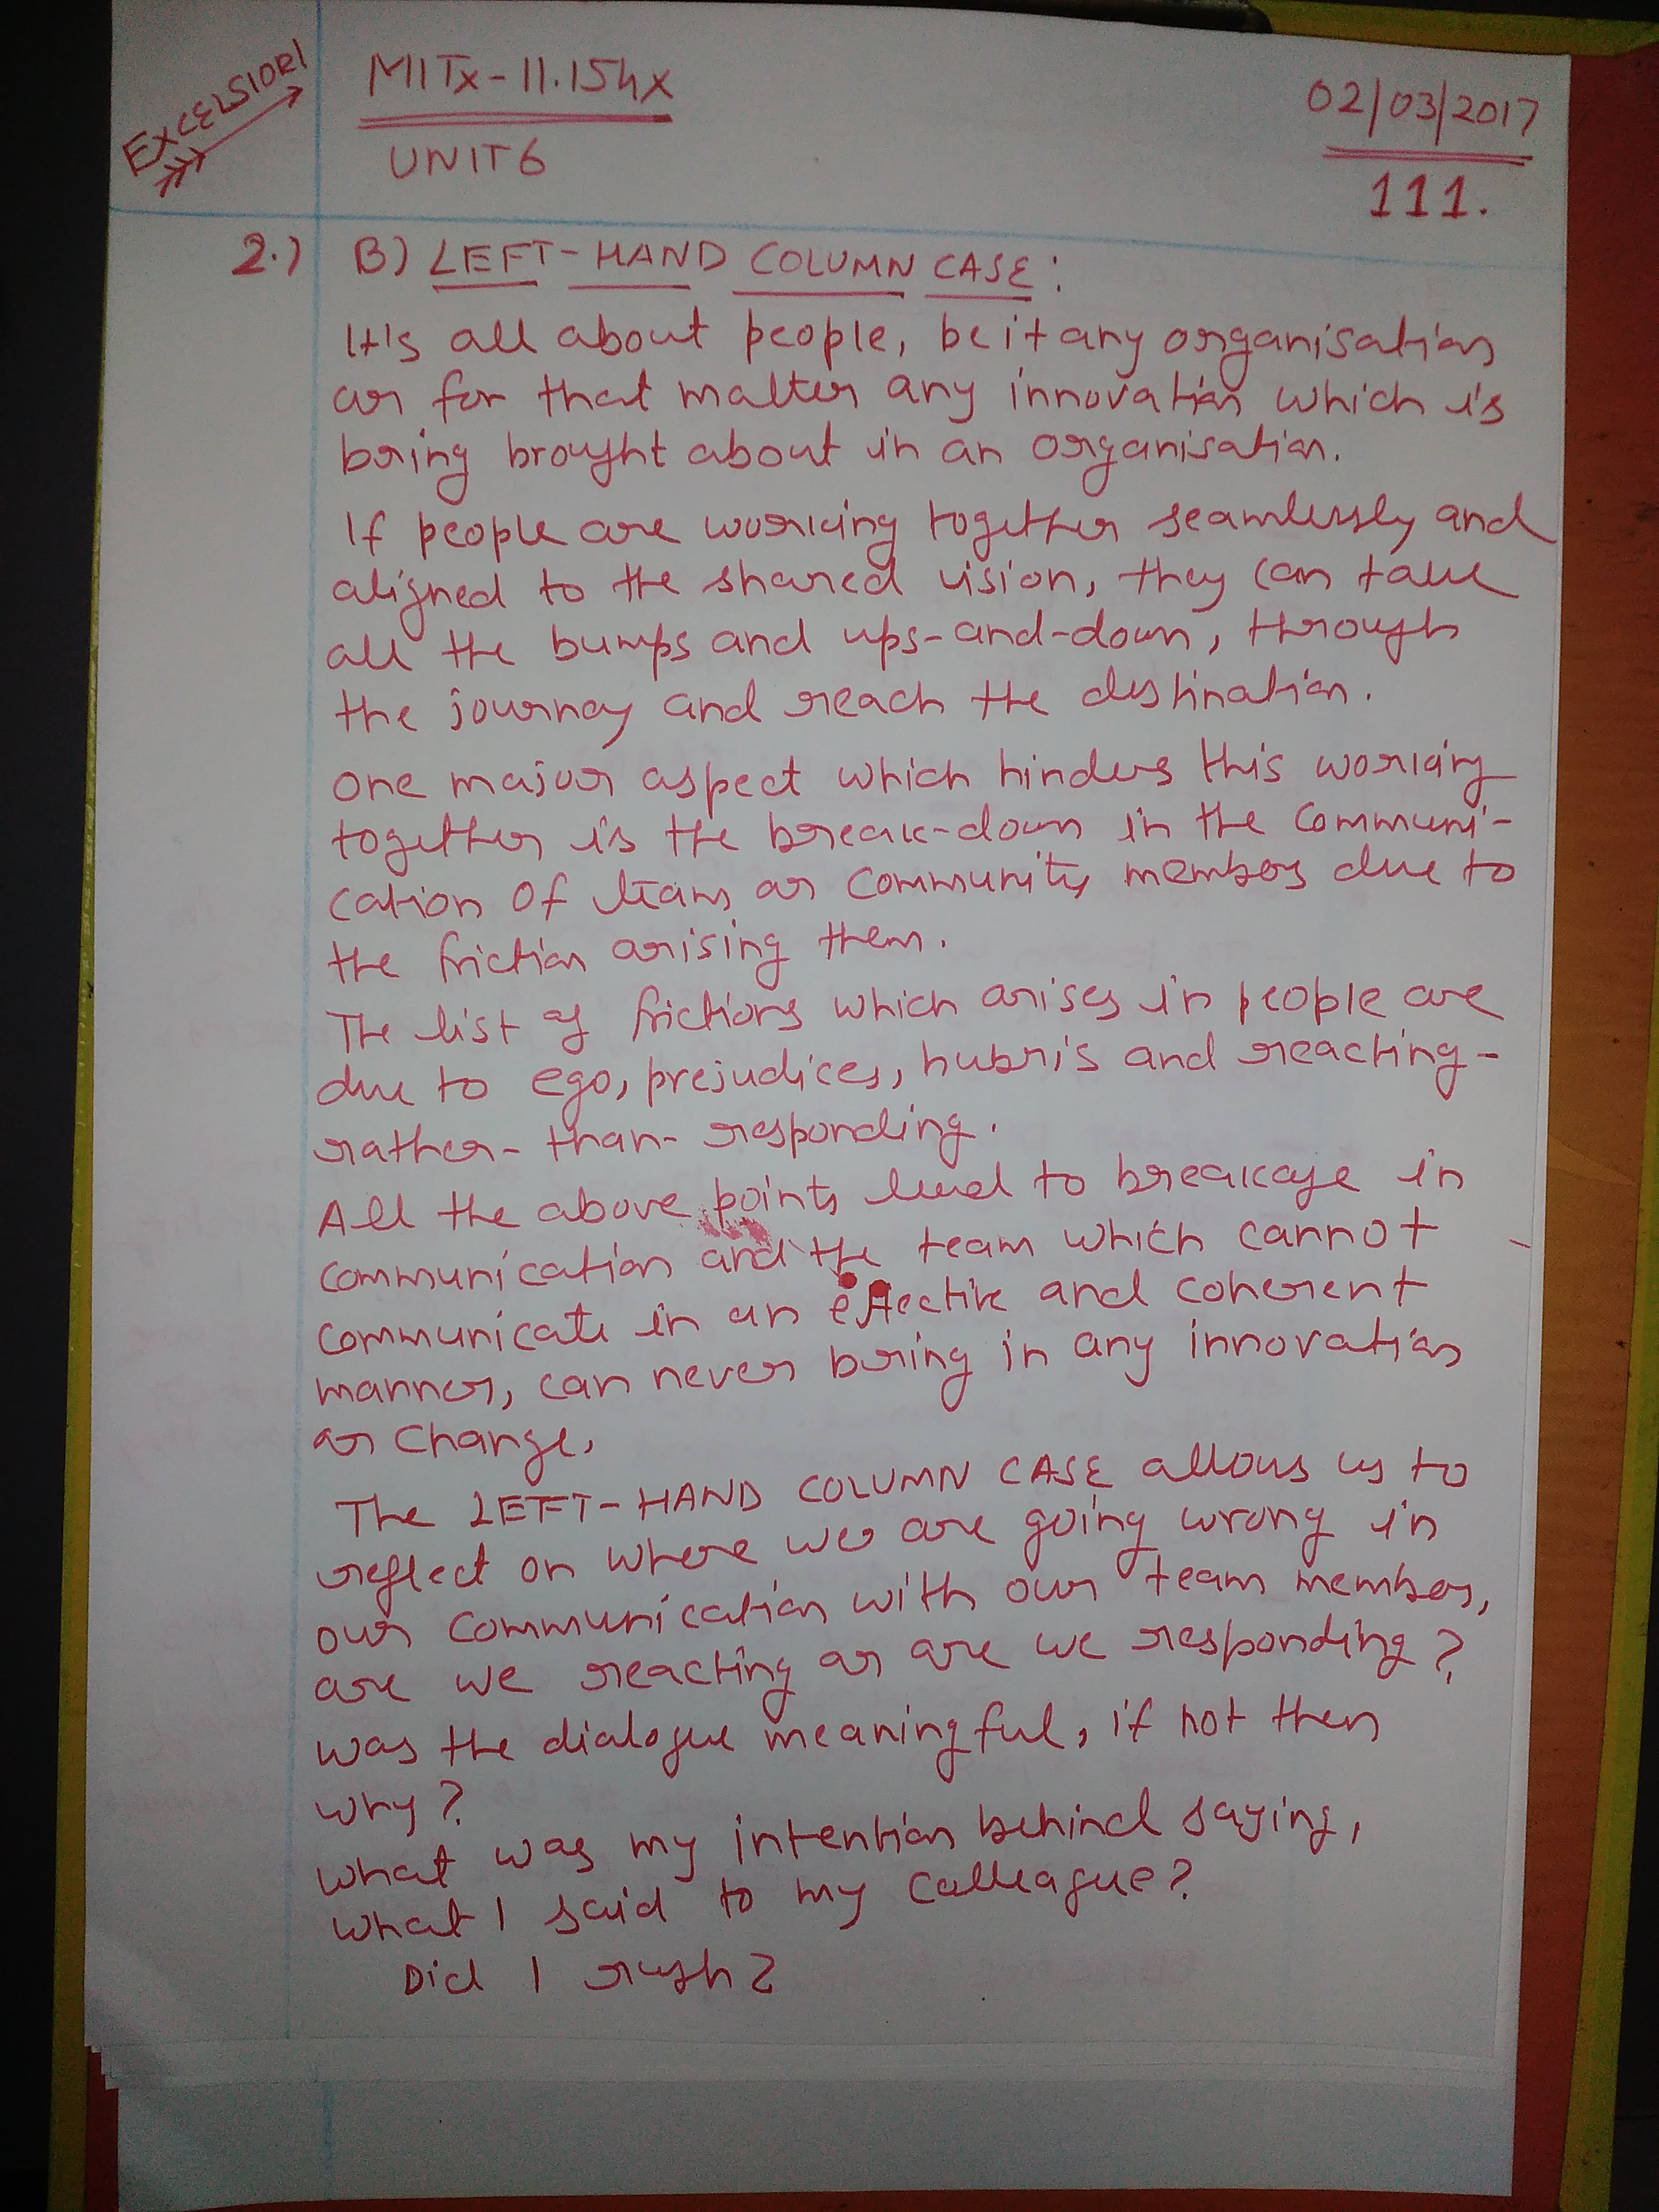 EXCELSIOR!
MITx-11.154x
UNIT 6
02/03/2017
111.
2.) B) LEFT-HAND COLUMN CASE:
It's all about people, be it any organisation
or for that matter any innovation which is
being brought about in an organisation.
If people are working together seamlessly and
aligned to the shared vision, they can take
all the bumps and ups-and-down, through
the journey and reach the destination.
One major aspect which hinders this working
together is the break-down in the communi-
cation of team or community members due to
the friction arising them.
The list of frictions which arises in people are
due to ego, prejudices, hubris and reacting-
rather-than-responding.
All the above points lead to breakage in
communication and the team which cannot
communicate in an effective and coherent
manner, can never bring in any innovation
or change.
The LEFT-HAND COLUMN CASE allows us to
reflect on where we are going wrong in
our communication with our team members,
are we reacting or are we responding?
was the dialogue meaningful, if not then
why?
What was my intention behind saying,
what I said to my colleague?
Did I rush?